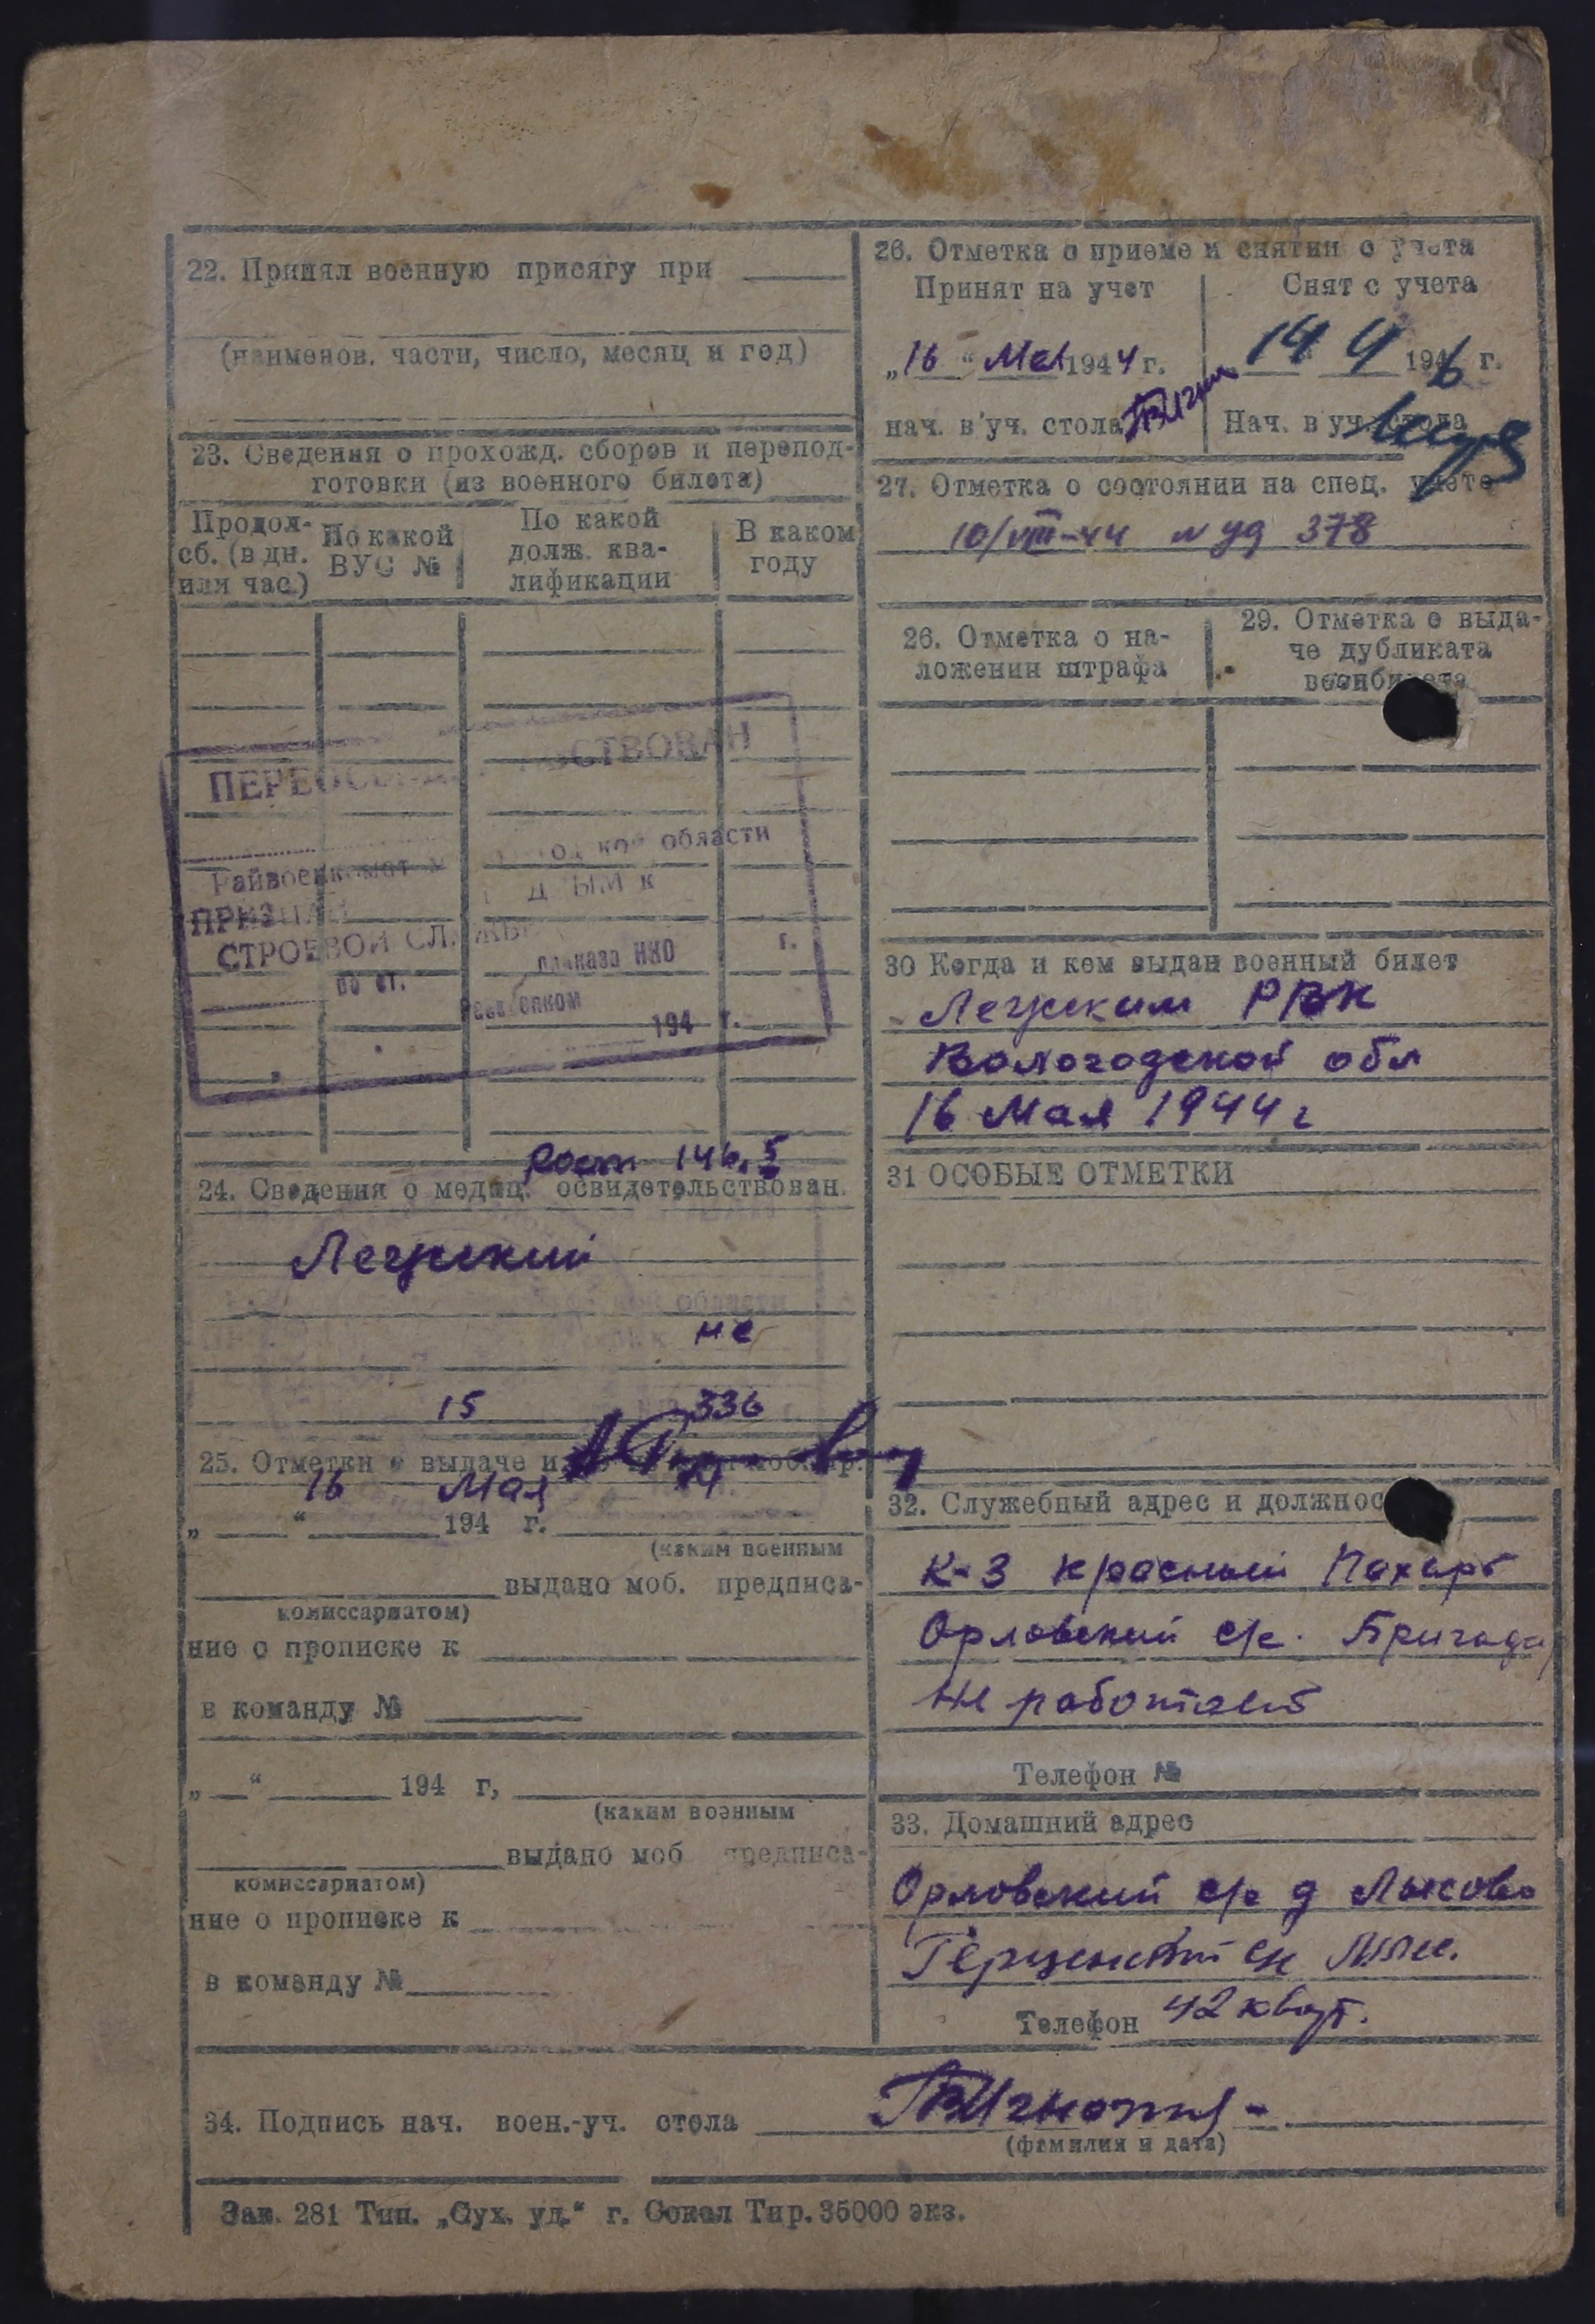 22. Принял военную присягу при
(наименов. части, число, месяц и год)
23. Сведения о прохожд. сборов и перепод-
готовки (из военного билета)
Продол-
сб. (в дн.
или час.)
По какой
ВУС №
По какой
долж. ква-
лификации
В каком
году
ПЕРЕОСВИДЕТЕЛЬСТВОВАН
Райвоенкомат области
ПРИЗНАН
СТРОЕВОЙ СЛУЖБЕ
по ст. приказа НКО г.
194 г.
рост 146,5
24. Сведения о медиц. освидетельствован.
Лежский
области
не
15 336
25. Отметки о выдаче
16 Мая
„ “ 194 г.
(каким военным
выдано моб. предписа-
комиссариатом)
ние о прописке к
в команду №
„ “ 194 г,
(каким военным
выдано моб предписа-
комиссариатом)
ние о прописке к
в команду №
26. Отметка о приеме и снятии с учета
Принят на учет
Снят с учета
„16“ Мая 1944 г.
14 4 1946 г.
нач. в уч. стола
Нач. в уч. стола
27. Отметка о состоянии на спец. учете
10/VIII-44 N уд 378
26. Отметка о на-
ложении штрафа
29. Отметка о выда-
че дубликата
военбилета
30 Когда и кем выдан военный билет
Лежским РВК
Вологодской обл
16 Мая 1944 г
31 ОСОБЫЕ ОТМЕТКИ
32. Служебный адрес и должнос
К-з Красный Пахарь
Орловский с/с. Бригадир
Не работает
Телефон №
33. Домашний адрес
Орловский с/с д Лысово
42 кварт.
Телефон
34. Подпись нач. воен.-уч. стола
(фамилия и дата)
Зак. 281 Тип. „Сух. уд.“ г. Сокол Тир. 35000 экз.